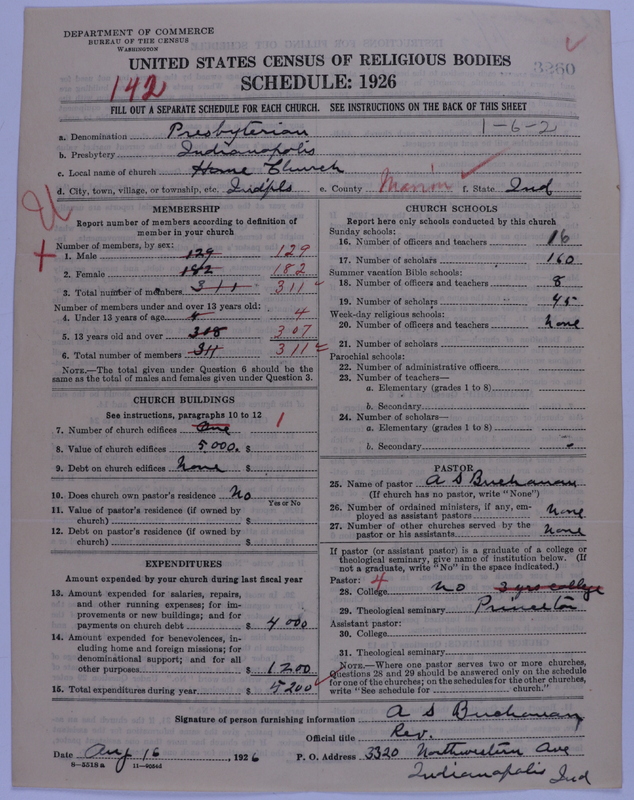 DEPARTMENT OF COMMERCE
BUREAU OF THE CENSUS
WASHINGTON
UNITED STATES CENSUS OF RELIGIOUS BODIES
3260
142
SCHEDULE: 1926
FILL OUT A SEPARATE SCHEDULE FOR EACH CHURCH. SEE INSTRUCTIONS ON THE BACK OF THIS SHEET
1-6-2
a. Denomination Presbyterian
b. Presbytery Indianapolis
c. Local name of church Home Church
d. City, town, village, or township, etc. Indpls e. County Marion f. State Ind
MEMBERSHIP
Report number of members according to definition of
member in your church
Number of members, by sex:
1. Male 129 129
2. Female 182 182
3. Total number of members 311 311
Number of members under and over 13 years old:
4. Under 13 years of age 4 4
5. 13 years old and over 308 307
6. Total number of members 311 311
NOTE.—The total given under Question 6 should be
same as the total of males and females given under Question 3.
CHURCH BUILDINGS
See instructions, paragraphs 10 to 12
7. Number of church edifices One 1
8. Value of church edifices 5000. $
9. Debt on church edifices None $
10. Does church own pastor's residence No
Yes or No
11. Value of pastor's residence (if owned by
church) $
12. Debt on pastor's residence (if owned by
church) $
EXPENDITURES
Amount expended by your church during last fiscal year
13. Amount expended for salaries, repairs,
and other running expenses; for im-
provements or new buildings; and for
payments on church debt $ 4000
14. Amount expended for benevolences, in-
cluding home and foreign missions; for
denominational support; and for all
other purposes $ 1200
15. Total expenditures during year $ 5200
CHURCH SCHOOLS
Report here only schools conducted by this church
Sunday schools:
16. Number of officers and teachers 16
17. Number of scholars 160
Summer vacation Bible schools:
18. Number of officers and teachers 8
19. Number of scholars 45
Week-day religious schools:
20. Number of officers and teachers None
21. Number of scholars
Parochial schools:
22. Number of administrative officers
23. Number of teachers—
a. Elementary (grades 1 to 8)
b. Secondary
24. Number of scholars—
a. Elementary (grades 1 to 8)
b. Secondary
PASTOR
25. Name of pastor A S Buchanan
(If church has no pastor, write "None")
26. Number of ordained ministers, if any, em-
ployed as assistant pastors None
27. Number of other churches served by the
pastor or his assistants None
If pastor (or assistant pastor) is a graduate of a college or
theological seminary, give name of institution below. (If
not a graduate, write "No" in the space indicated.)
Pastor: 4
28. College No 3 yrs college
29. Theological seminary Princeton
Assistant pastor:
30. College
31. Theological seminary
NOTE.—Where one pastor serves two or more churches,
Questions 28 and 29 should be answered only on the schedule
for one of the churches; on the schedules for the other churches,
write "See schedule for church."
Signature of person furnishing information A S Buchanan
Official title Rev.
Date Aug 16, 1926 P. O. Address 3320 Northwestern Ave
8-5518a 11-9054d Indianapolis Ind